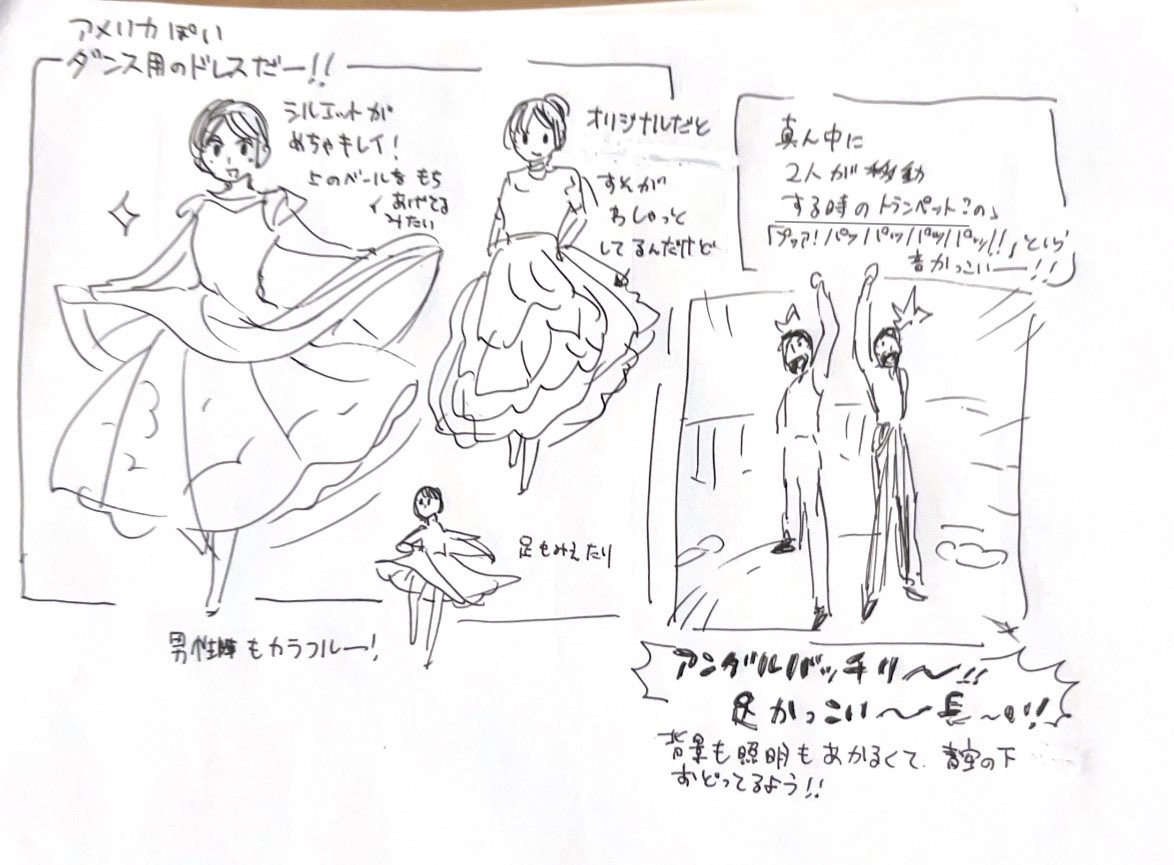 アメリカぽい
ダンス用のドレスだー!!
シルエットが
めちゃキレイ!
上のベールをもち
あげてる
みたい
オリジナルだと
すそが
わしゃっと
してるんだけど
足もみえたり
男性陣もカラフルー!
真ん中に
2人が移動
する時のトランペット?の、
「プップァ!パッパッパッパッ!!」という
音かっこいーー!!
アングルバッチリ〜!!
足かっこい〜長〜い!!
背景も照明もあかるくて、青空の下
おどってるよう!!